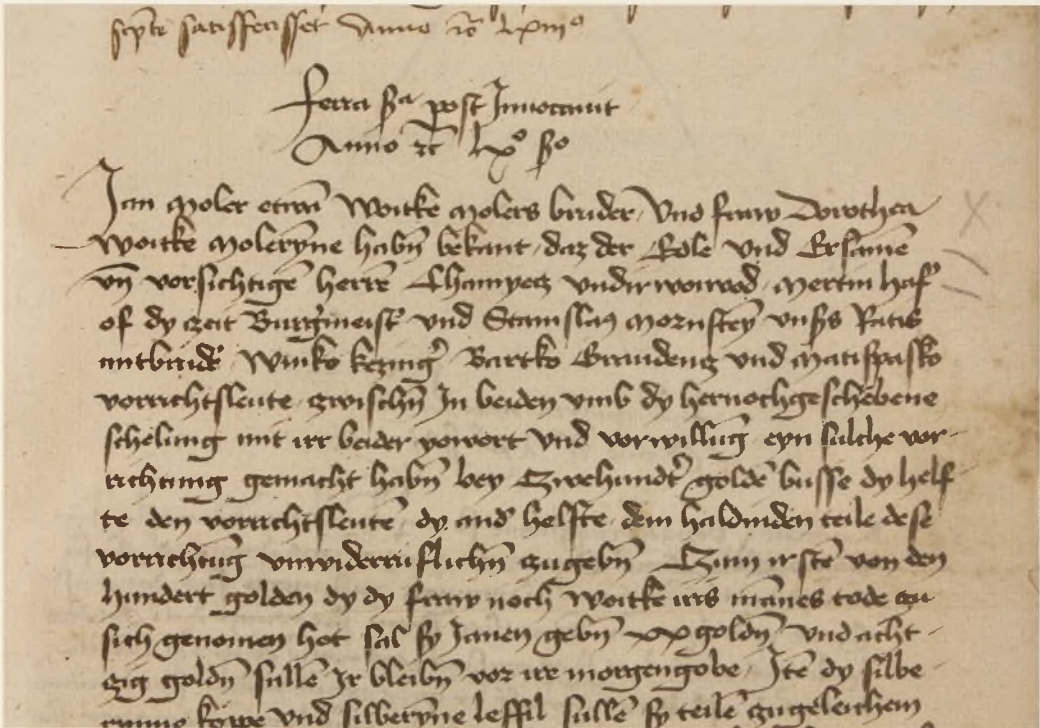 scpte satisfecisset Anno etc lxiiiº
feria sᵃ post Innocauit
Anno etc lxº sº
Jan moler etwañ Woitke molers bruder Vnd fraw Dorothea
Woitke molerȳne habn̄ bekant daz der Edle vnd Ersame
vn̄ vorsichtigē herrē Chamyecz vndirwoiwod mertin
of dy czeit Burg̓meist̓ vnd Stanislaꝰ mornsteȳ vnßs Ratis
mitbrud̓ Winko Bartko Graudencz vnd mati
vorrichtsleute czwischn̄ In beiden vmb dy hernochgeschebene
schelung mit irr beider yowort vnd vorwillūg eyn sulche vor-
richtung gemacht habn̄ bey Czwehundt̓ goldē busse dy helf
te den vorrichtsleutē dy and̓ helfte dem haldinden teile dese
vorrichtūg vnwiderruflichn̄ czugebn̄ Czum irstē von den
hundert golden dy dy fraw noch Woitke irs mānes tode czu
sich genomen hot sal sy Janen gebn̄ xx goldn̄ vnd acht
czig goldn̄ sullē Ir bleibn̄ vor ire morgengobe Itē dy silbe
rynne koppe vnd silberyne leffil sullē sy teilē czugeleichem